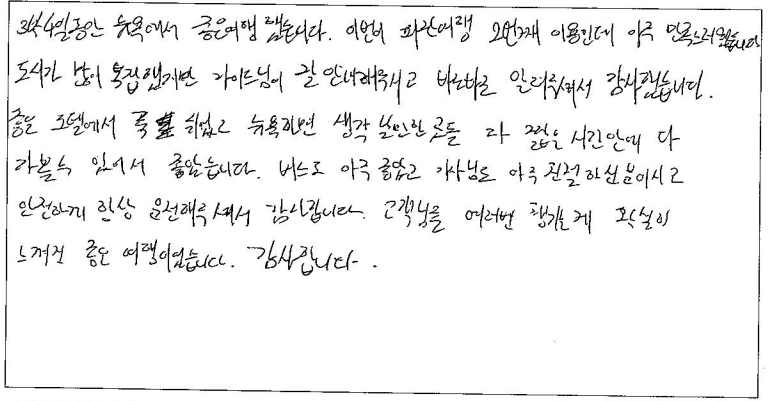 3박4일동안 뉴욕에서 좋은여행 했습니다. 이번이 파란여행 2번째 이용인데 아주 만족스러웠습니다
도시가 많이 복잡했지만 가이드님이 잘 안내해주시고 바로바로 알려주셔서 감사했습니다.
좋은 호텔에서 푹 쉬었고 뉴욕하면 생각날만한 곳들 다 짧은 시간안에 다
가볼수 있어서 좋았습니다. 버스도 아주 좋았고 기사님도 아주 친절하신분이시고
안전하게 항상 운전해주셔서 감사합니다. 고객님을 여러번 챙기는게 확실히
느껴진 좋은 여행이었습니다. 감사합니다.